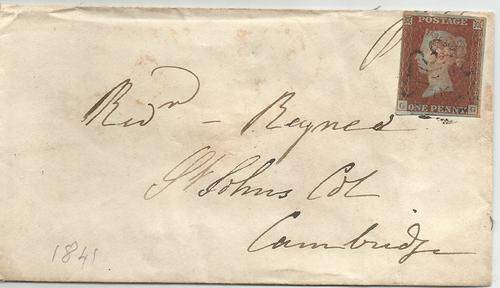 POSTAGE
ONE PENNY
Revd - Reyner
St Johns Col
Cambridge
1841